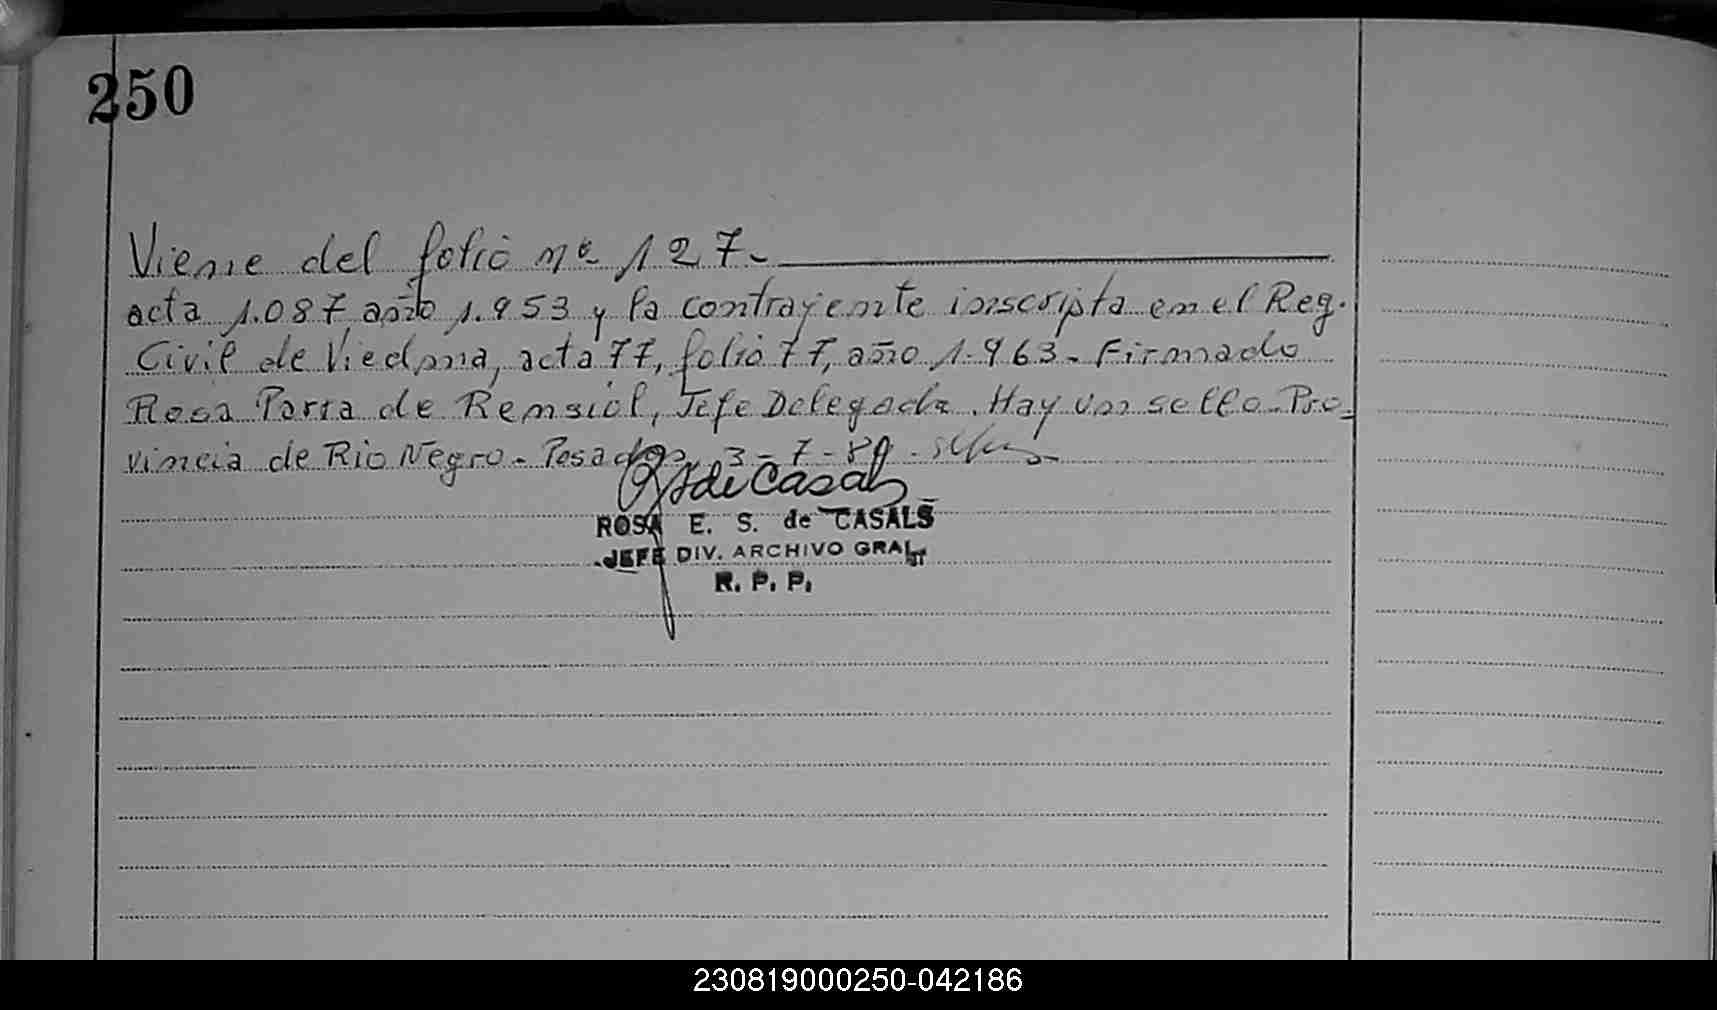 250
Viene del folio nº 127.-
acta 1.087 año 1.953 y la contrayente inscripta en el Reg.
Civil de Viedma, acta 77, folio 77, año 1.963. Firmado
Rosa Parra de Remsiol, Jefe Delegada. Hay un sello. Pro-
vincia de Rio Negro - Posadas, 3-7-89.
ROSA E. S. de CASALS
JEFE DIV. ARCHIVO GRAL.
R. P. P.
230819000250-042186